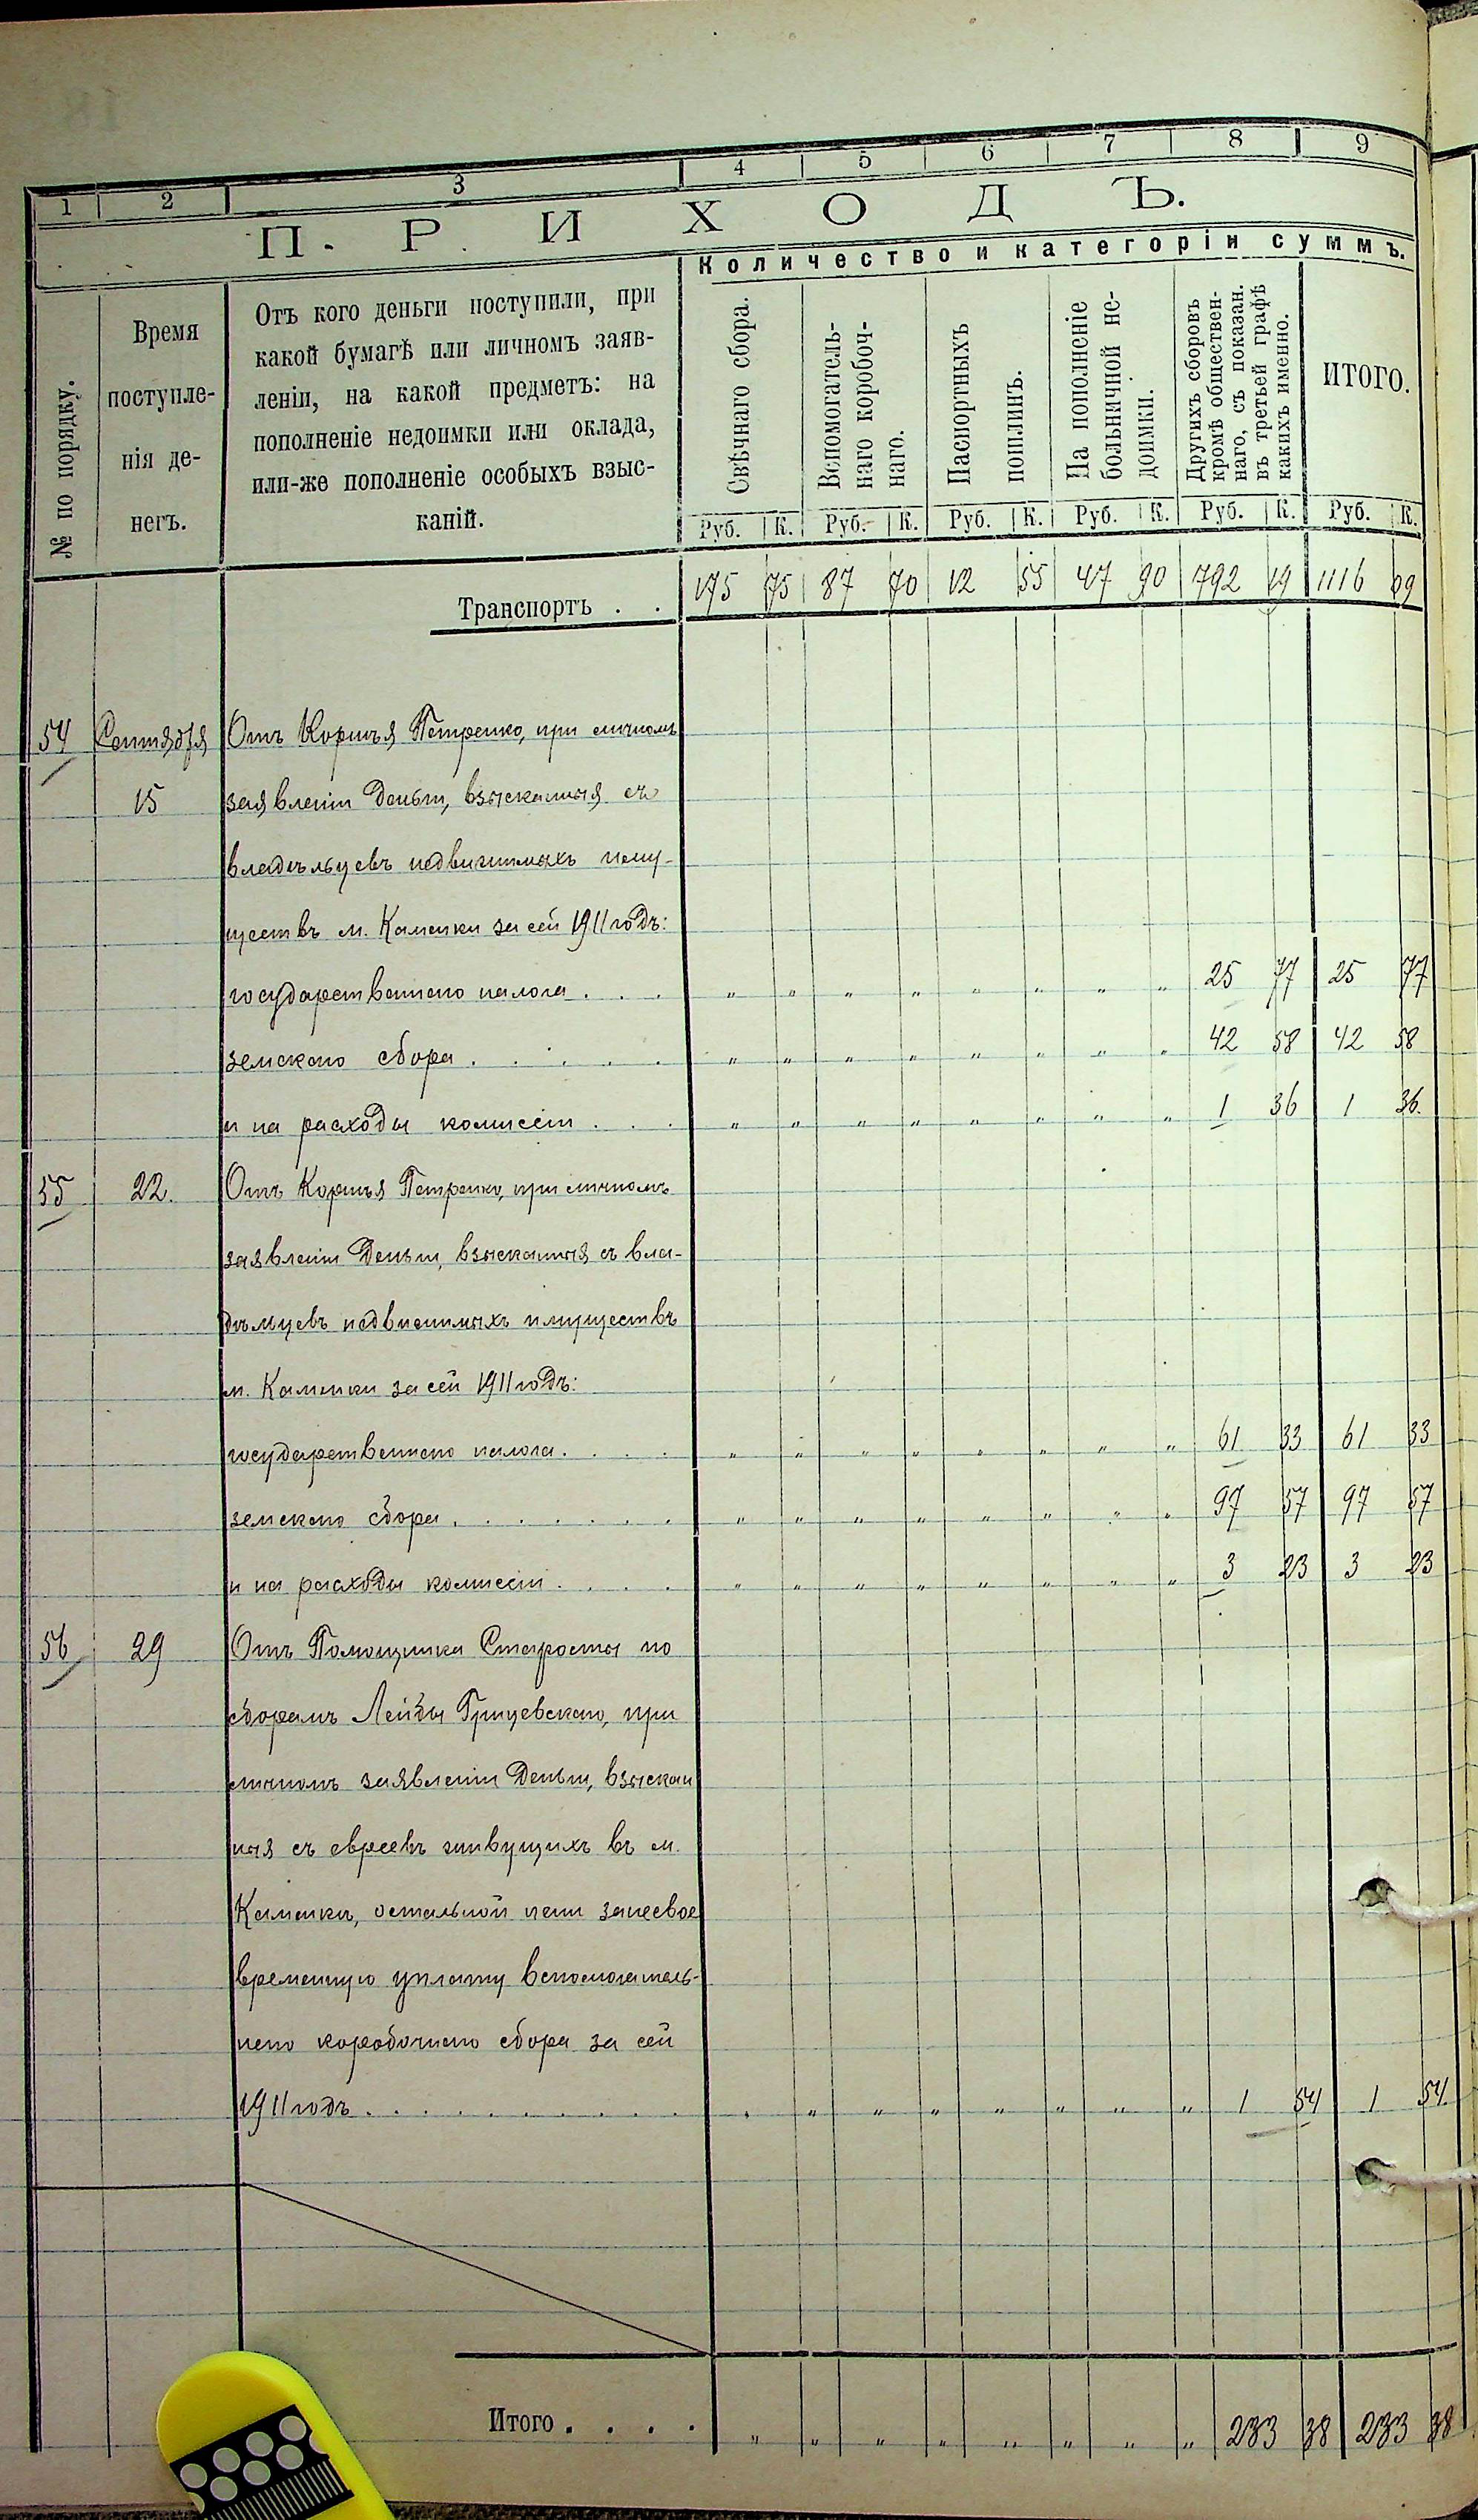 1 2 3 4 5 6 7 8 9
П Р И Х О Д Ъ.
Количество и категоріи суммъ.
№ по порядку.
Время
поступле-
нія де-
негъ.
Отъ кого деньги поступили, при
какой бумагѣ или личномъ заяв-
леніи, на какой предметъ: на
пополненіе недоимки или оклада,
или-же пополненіе особыхъ взыс-
каній.
Свѣчнаго сбора.
Вспомогатель-
наго коробоч-
наго.
Паспортныхъ
пошлинъ.
На пополненіе
больничной не-
доимки.
Другихъ сборовъ
кромѣ обществен-
наго, съ показан.
въ третьей графѣ
какихъ именно.
ИТОГО.
Руб. К. Руб. К. Руб. К. Руб. К. Руб. К. Руб. К.
Транспортъ . . 175 75 87 70 12 55 47 90 792 19 1116 09
54 Сентября Отъ Корнѣя Петренко, при личномъ
15 заявленіи деньги, взысканныя съ
владѣльцевъ недвижимыхъ иму-
ществъ м. Каменки за сей 1911 годъ:
государственнаго налога . . . „ „ „ „ „ „ „ „ 25 77 25 77
земскаго сбора . . . . . „ „ „ „ „ „ „ „ 42 58 42 58
и на расходы комиссіи . . . „ „ „ „ „ „ „ „ 1 36 1 36.
55 22. Отъ Корнѣя Петренко, при личномъ
заявленіи деньги, взысканныя съ вла-
дѣльцевъ недвижимыхъ имуществъ
м. Каменки за сей 1911 годъ:
государственнаго налога . . . . „ „ „ „ „ „ „ „ 61 33 61 33
земскаго сбора . . . . . . . „ „ „ „ „ „ „ „ 97 57 97 57
и на расходы комиссіи . . . . „ „ „ „ „ „ „ „ 3 23 3 23
56 29 Отъ Помощника Старосты по
сборамъ Лейбы Грицевскаго, при
личномъ заявленіи деньги, взыскан
ныя съ евреевъ живущихъ въ м.
Каменкѣ, остальной пени за несвое
временную уплату вспомогатель-
наго коробочнаго сбора за сей
1911 годъ . . . . . . . . . . „ „ „ „ „ „ „ „ 1 54 1 54.
Итого . . . . „ „ „ „ „ „ „ „ 233 38 233 38